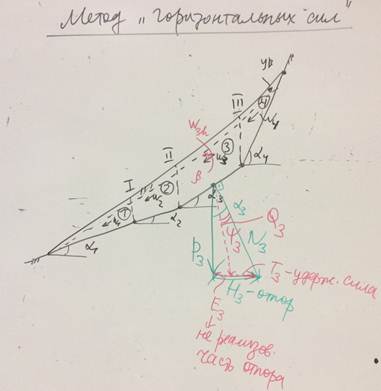 Метод „горизонтальных сил"
УВ
III
④
W₃h
u₄
II
③
u₃
α₄
I
β
②
u₂
α₃
①
u₁
α₂
α₁
α₃
Q₃
Ψ₃
N₃
P₃
T₃-удерж. сила
H₃-отпор
E₃
не реализов.
часть отпора